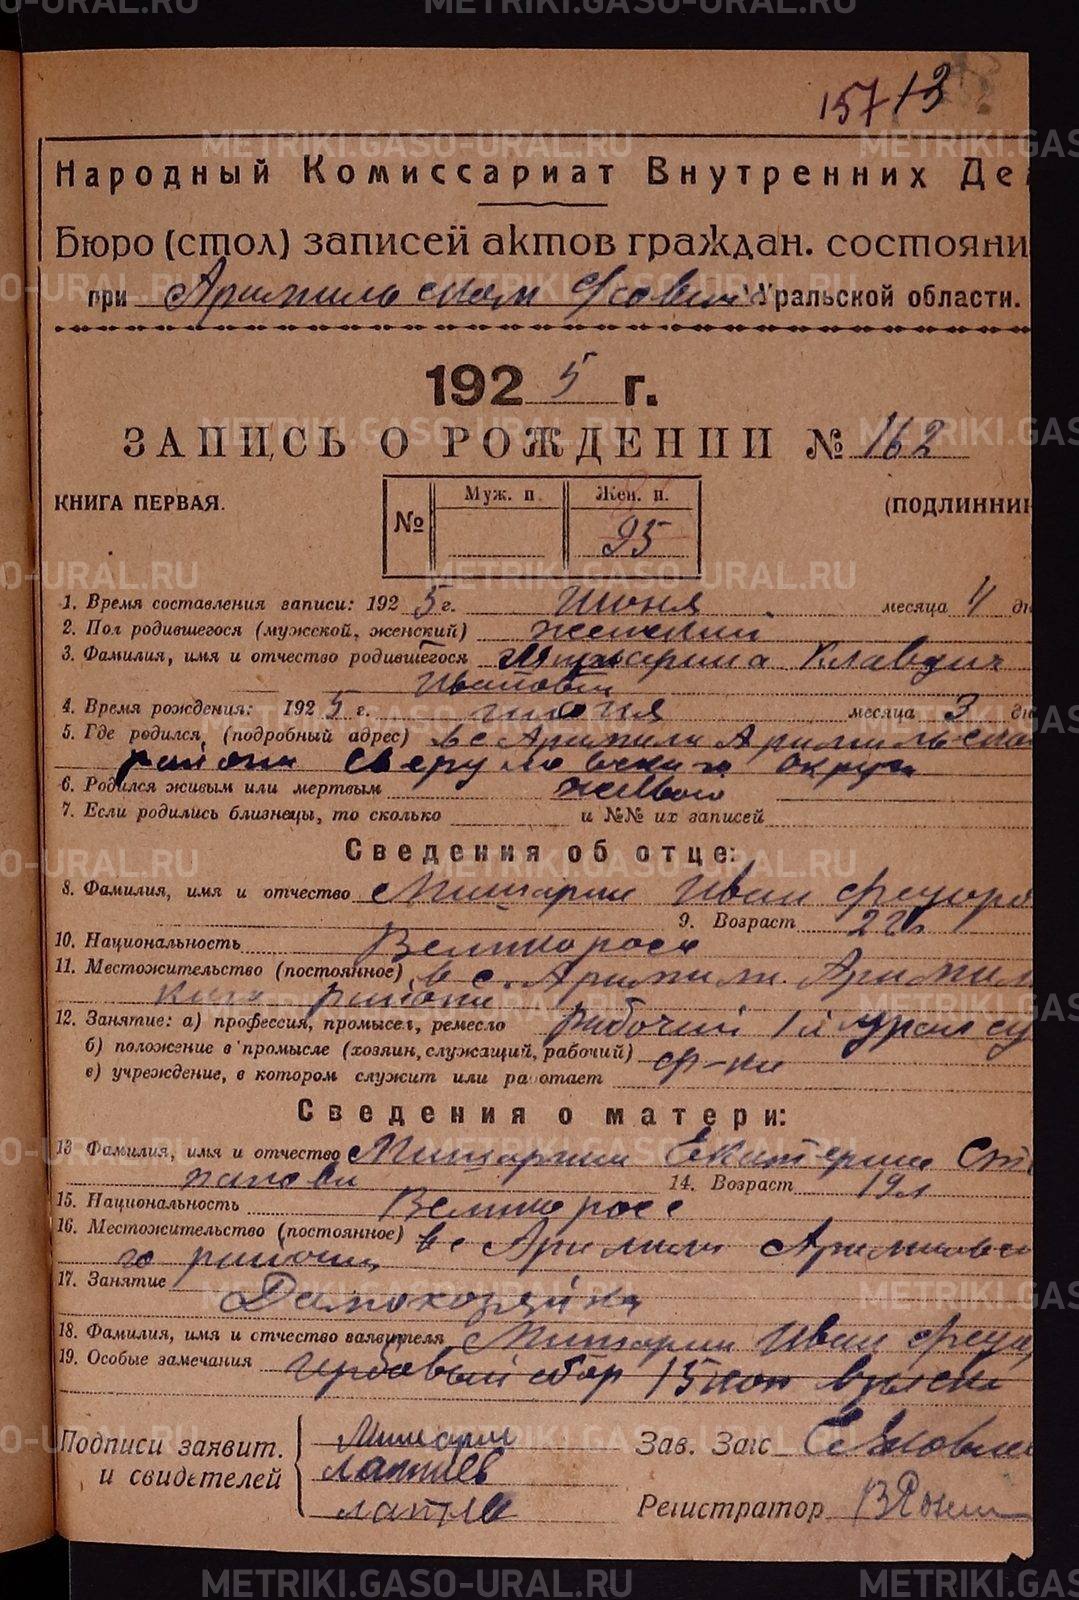 157 13
Народный Комиссариат Внутренних Де
Бюро (стол) записей актов граждан. состояни
при Арамильском Уральской области.
1925 г.
ЗАПИСЬ О РОЖДЕНИИ № 162
КНИГА ПЕРВАЯ. (ПОДЛИННИ
№ Муж. п. Жен. п.
95
1. Время составления записи: 1925 г. Июня месяца 4 дн
2. Пол родившегося (мужской, женский) женский
3. Фамилия, имя и отчество родившегося Клавдия
Ивановна
4. Время рождения: 1925 г. июня месяца 3 дн
5. Где родился, (подробный адрес) в с Арамили Арамильска
района Свердловского округа
6. Родился живым или мертвым живою
7. Если родились близнецы, то сколько и №№ их записей
Сведения об отце:
8. Фамилия, имя и отчество Мишарин Иван Федоро
9. Возраст 22
10. Национальность Великоросс
11. Местожительство (постоянное) в с. Арамили Арамил
района
12. Занятие: а) профессия, промысел, ремесло рабочий
б) положение в промысле (хозяин, служащий, рабочий) ф-ки
в) учреждение, в котором служит или работает
Сведения о матери:
13 Фамилия, имя и отчество Мишарина Екатерина Сте
14. Возраст 19 л
15. Национальность Великоросс
16. Местожительство (постоянное) в с Арамили
го района
17. Занятие Домохозяйка
18. Фамилия, имя и отчество заявителя Мишарин Иван Федо
19. Особые замечания Гербовый сбор 15 коп
Подписи заявит. Мишарин Зав. Загс
и свидетелей Лаптев
Регистратор
METRIKI.GASO-URAL.RU